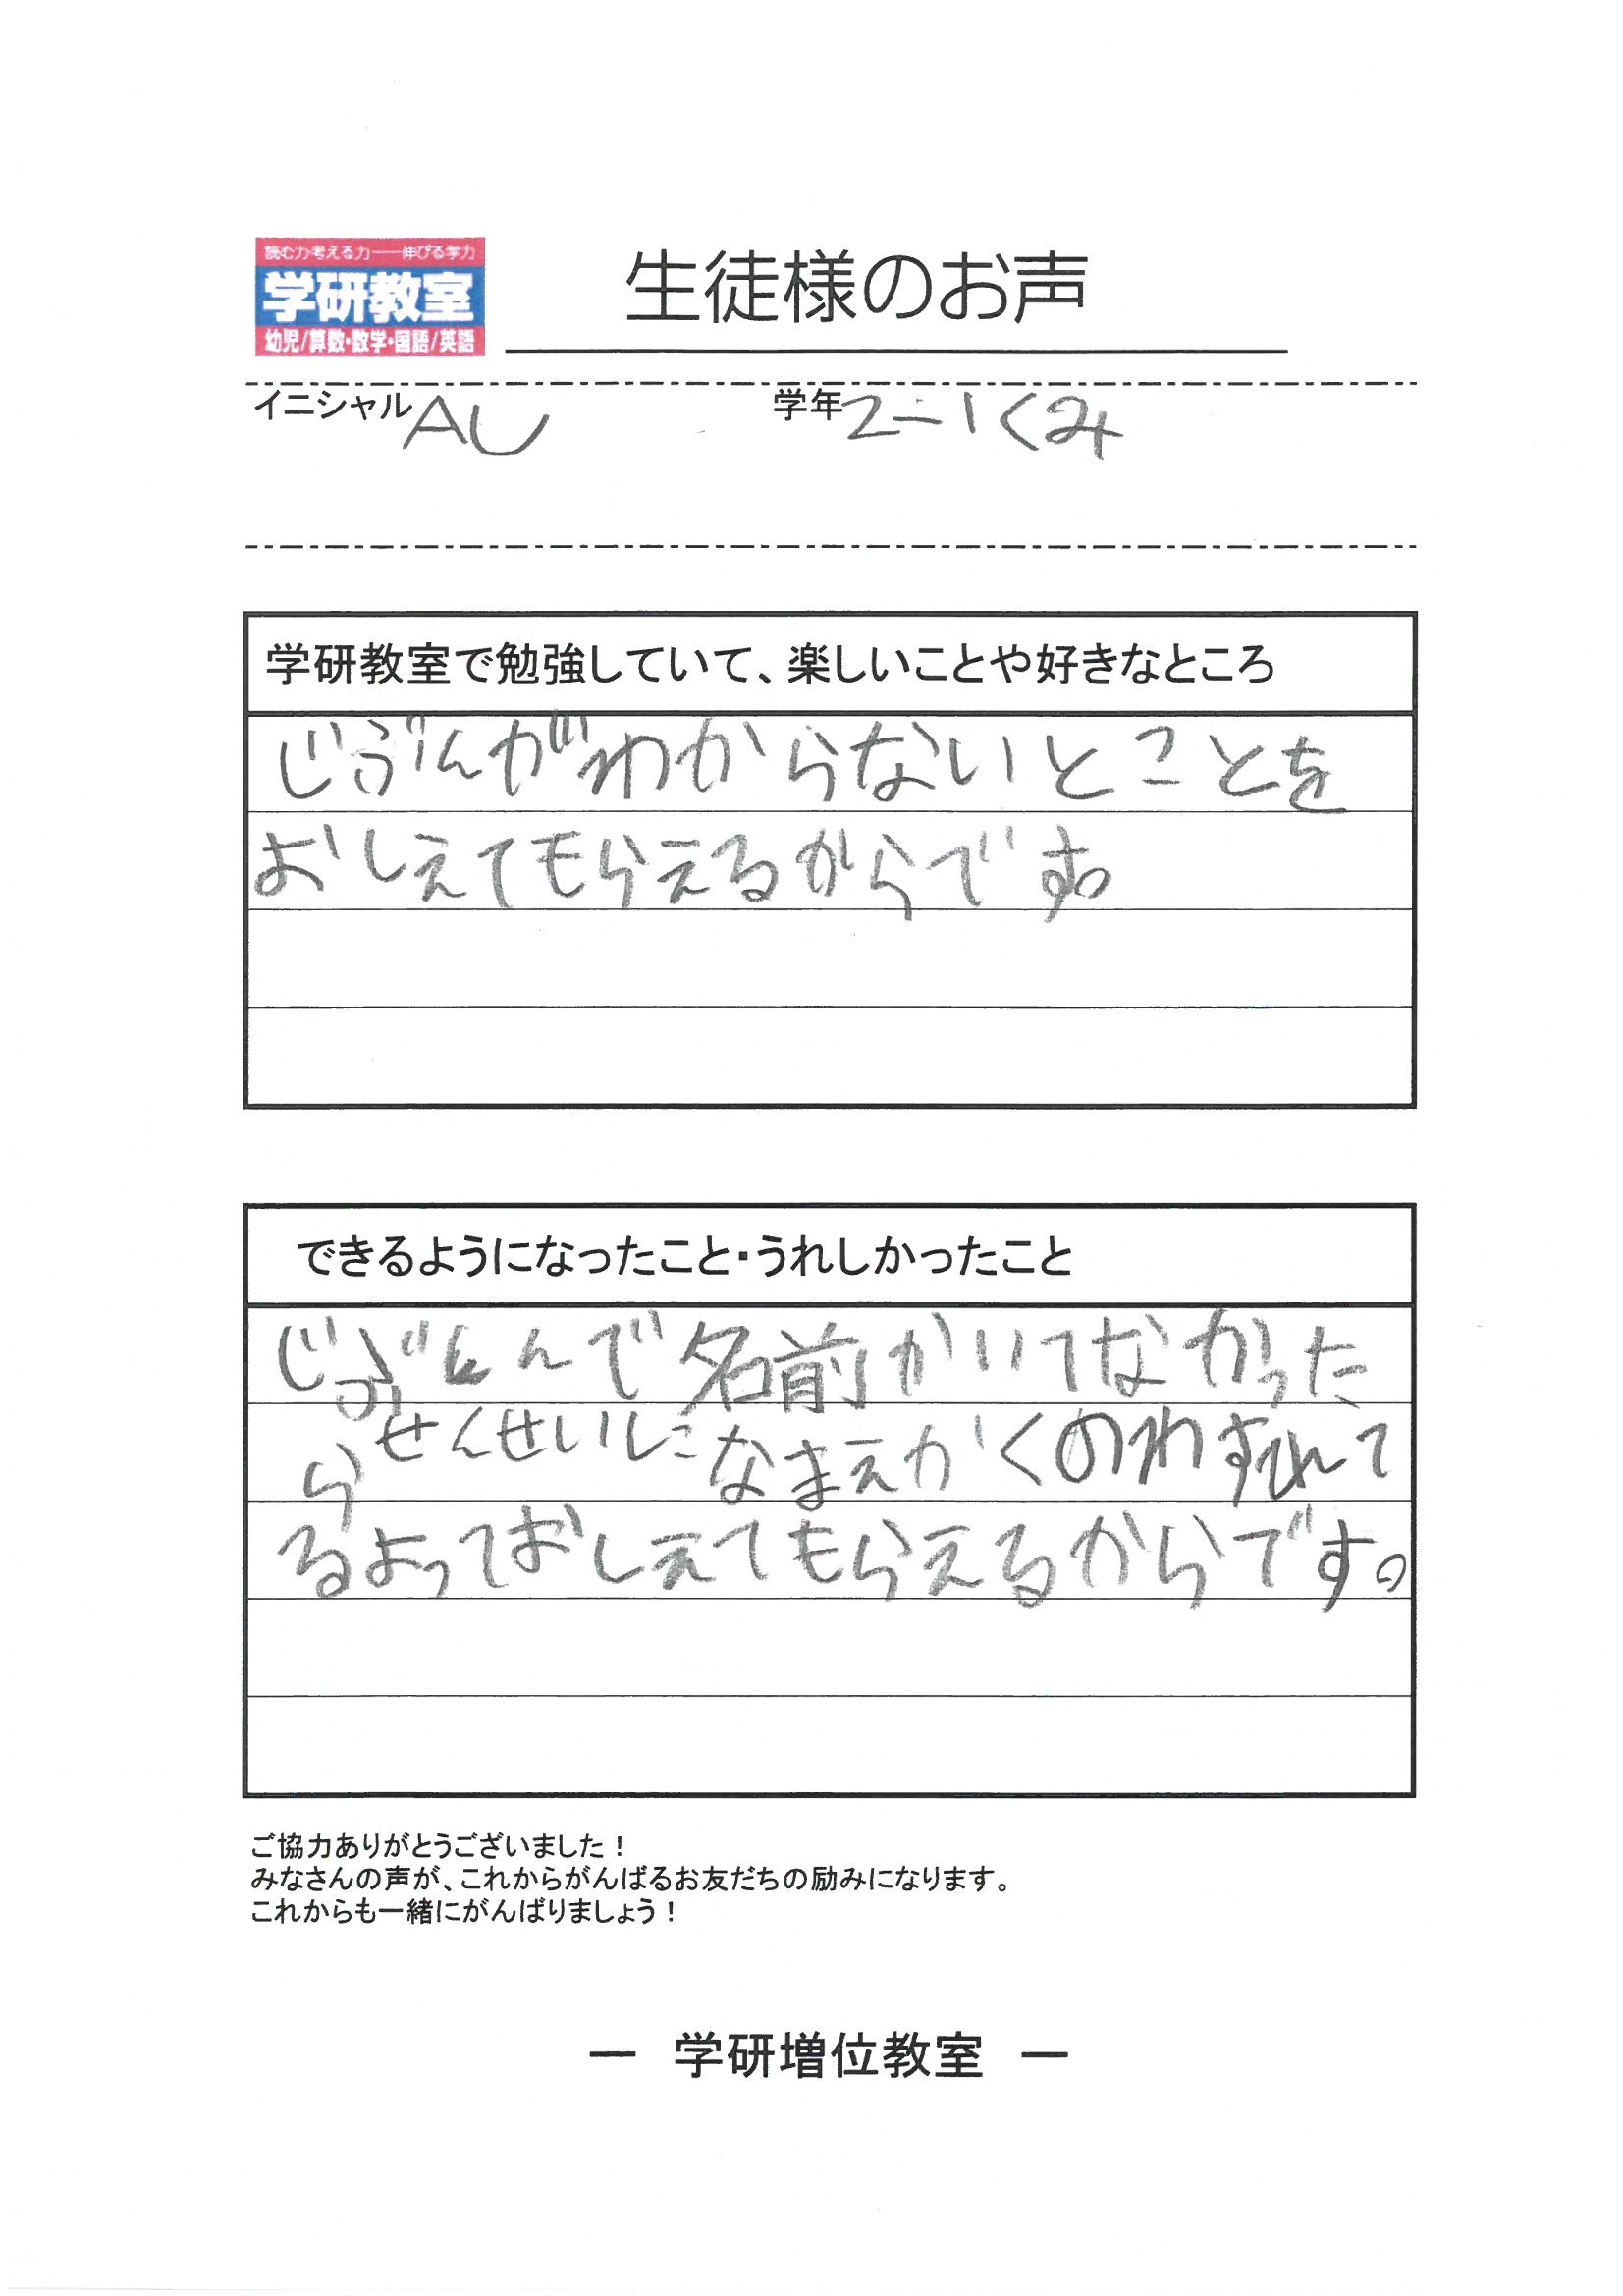 読む力考える力——伸びる学力
学研教室
幼児/算数・数学・国語/英語
生徒様のお声
イニシャル AU 学年 2-1くみ
学研教室で勉強していて、楽しいことや好きなところ
じぶんがわからないとことを
おしえてもらえるからです。
できるようになったこと・うれしかったこと
で名前かいてなかった
らせんせいになまえかくのわすれて
るよっておしえてもらえるからです。
ご協力ありがとうございました！
みなさんの声が、これからがんばるお友だちの励みになります。
これからも一緒にがんばりましょう！
― 学研増位教室 ―